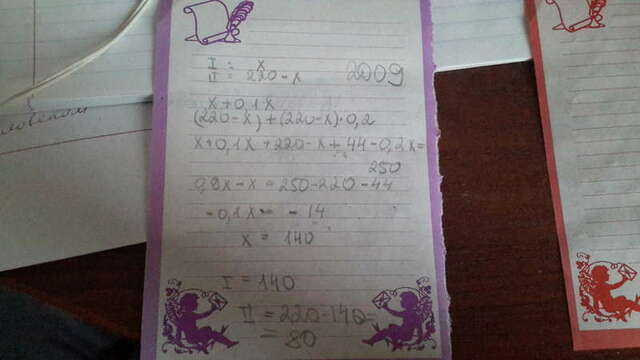 I = x
II = 220 - x
2009
x + 0,1x
(220 - x) + (220 - x) · 0,2
x + 0,1x + 220 - x + 44 - 0,2x =
250
0,9x - x = 250 - 220 - 44
- 0,1x = - 14
x = 140
I = 140
II = 220 - 140 =
= 80